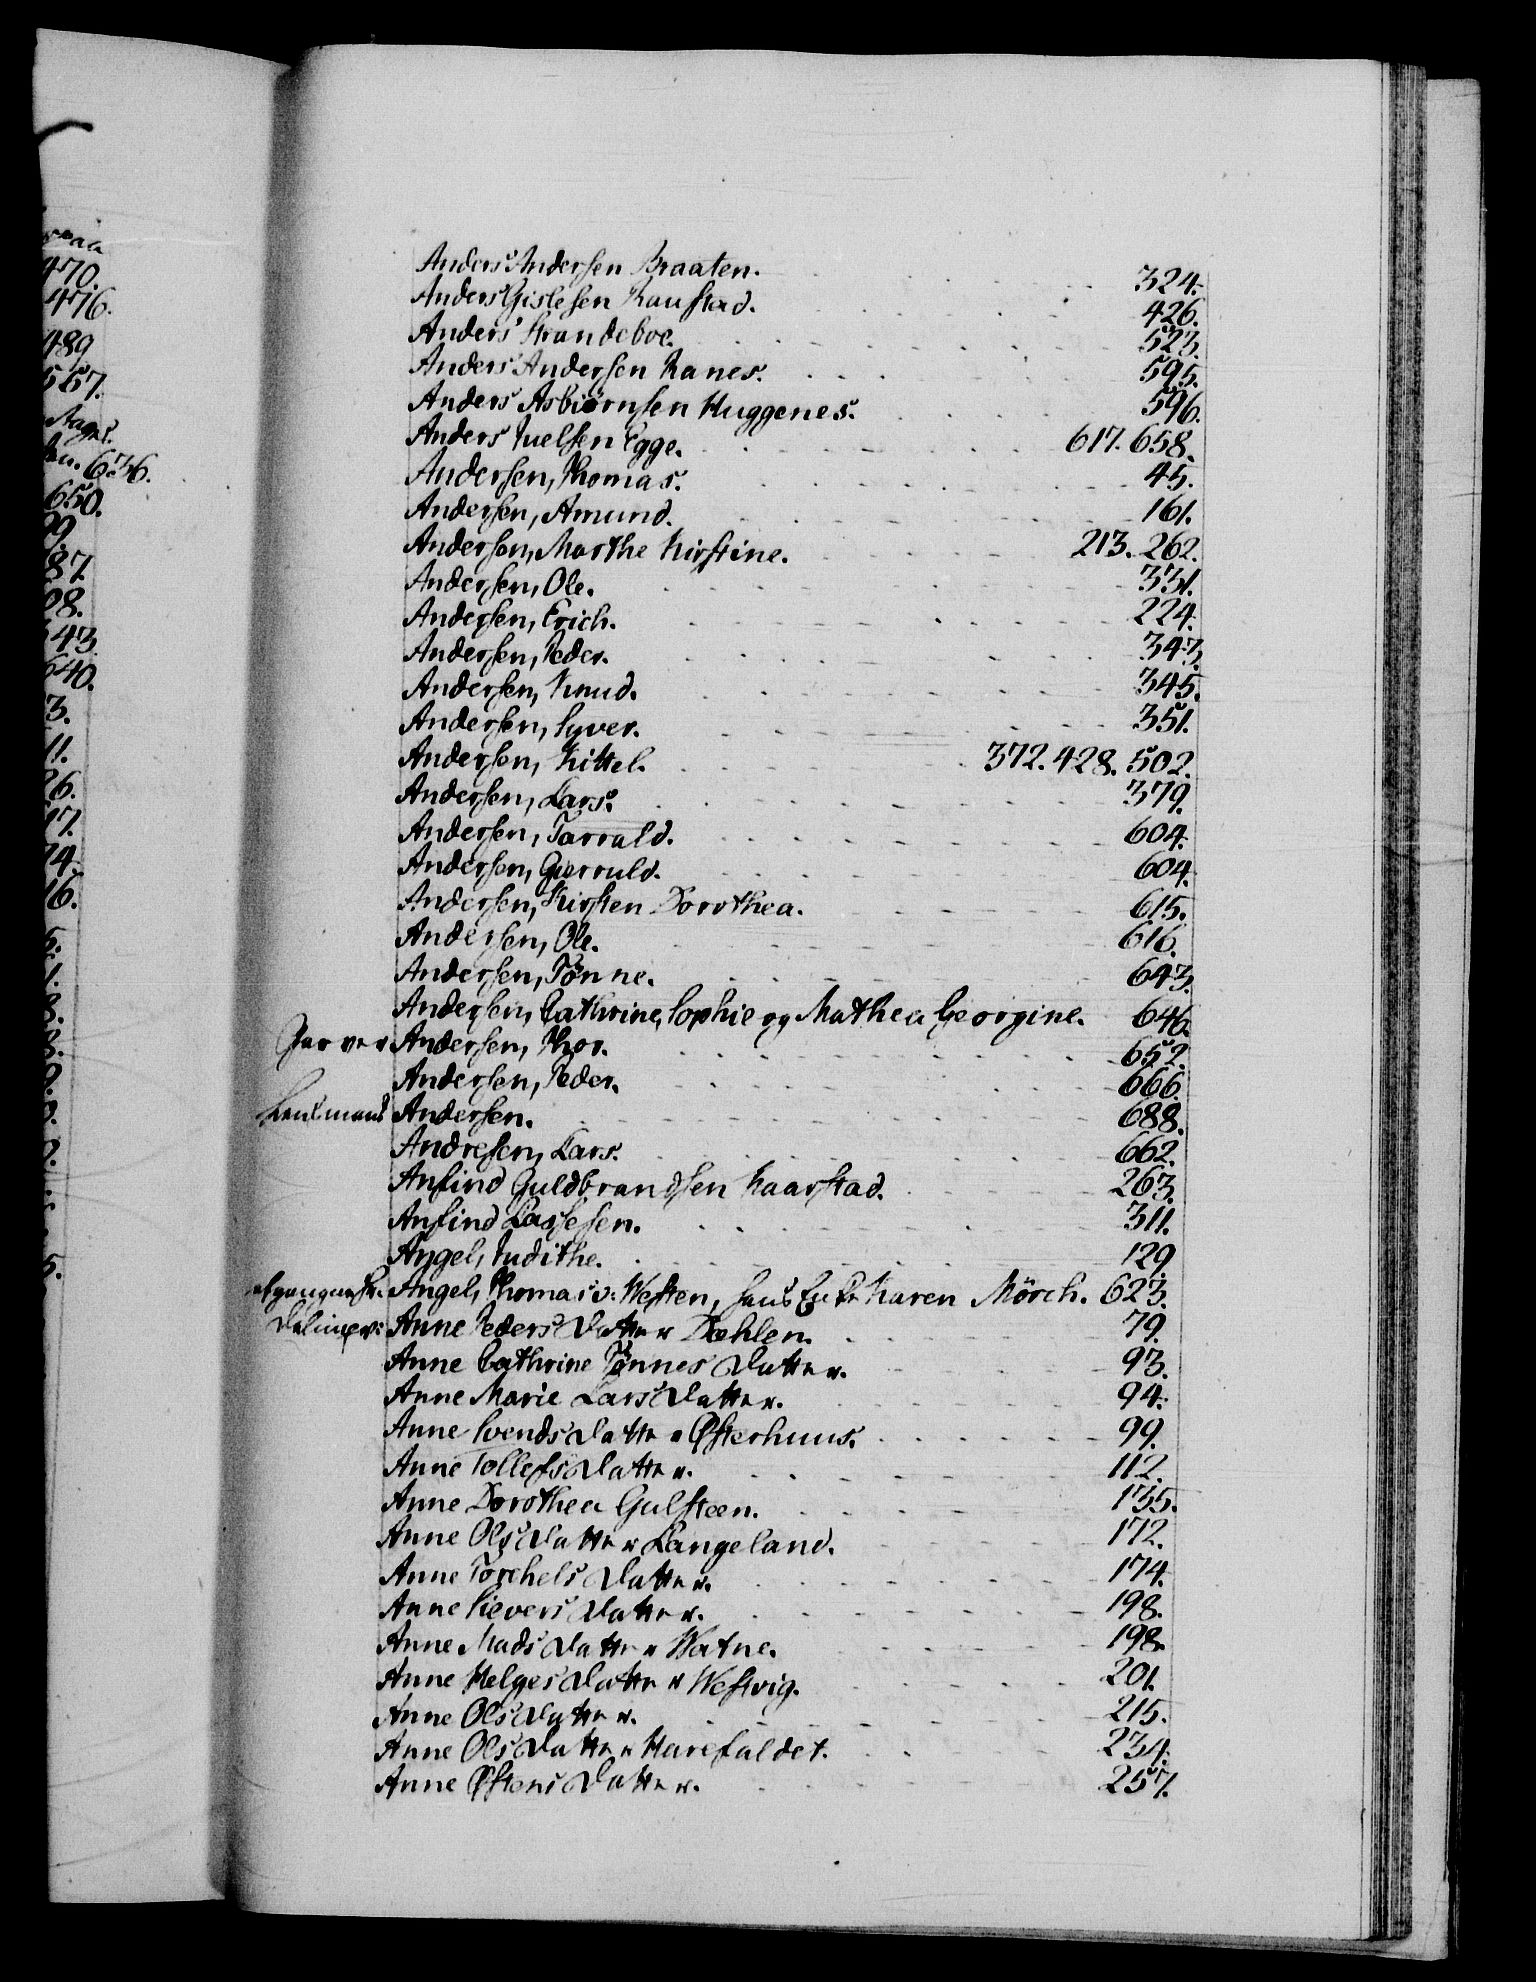 470.
476.
489
567.
636.
650.
99.
87.
08.
43.
640.
3.
11.
26.
17.
74.
16.
Anders Andersen Braaten. 324.
Anders Gislesen Raustad. 426.
Anders Strandeboe. 523.
Anders Andersen Ranes. 595.
Anders Asbiørnsen Huggenes. 596.
Anders Juelsen Egge. 617. 658.
Andersen, Thomas. 45.
Andersen, Amund. 161.
Andersen, Marthe Kirstine. 213. 262.
Andersen, Ole. 331.
Andersen, Erich. 224.
Andersen, Peder. 343.
Andersen, Knud. 345.
Andersen, Syver. 351.
Andersen, Kittel. 372. 428. 502.
Andersen, Lars. 379.
Andersen, Tarrald. 604.
Andersen, Gierruld. 604.
Andersen, Kirsten Dorothea. 615.
Andersen, Ole. 616.
Andersen, Tønne. 643.
Andersen, Cathrine, Sophie og Mathea Georgine. 646.
Garver Andersen, Thor. 652.
Andersen, Peder. 666.
Lensmand Andersen. 688.
Andresen, Lars. 662.
Anfind Guldbrandsen Kaarstad. 263.
Anfind Lassesen. 311.
Angel, Judithe. 129.
Angel, Thomas v: Westen, hans Enke Karen Mörch. 623.
Anne Peders Datter Dæhlen. 79.
Anne Cathrine Tønnes Datter. 93.
Anne Marie Lars Datter. 94.
Anne Svends Datter Østerhuus. 99.
Anne Tollefs Datter. 112.
Anne Dorothea Gulsteen. 135.
Anne Ols Datter Langeland. 172.
Anne Torchels Datter. 174.
Anne Sievers Datter. 198.
Anne Mads Datter Watne. 198.
Anne Helges Datter Westvig. 201.
Anne Ols Datter. 215.
Anne Ols Datter Harefaldet. 234.
Anne Østens Datter. 257.